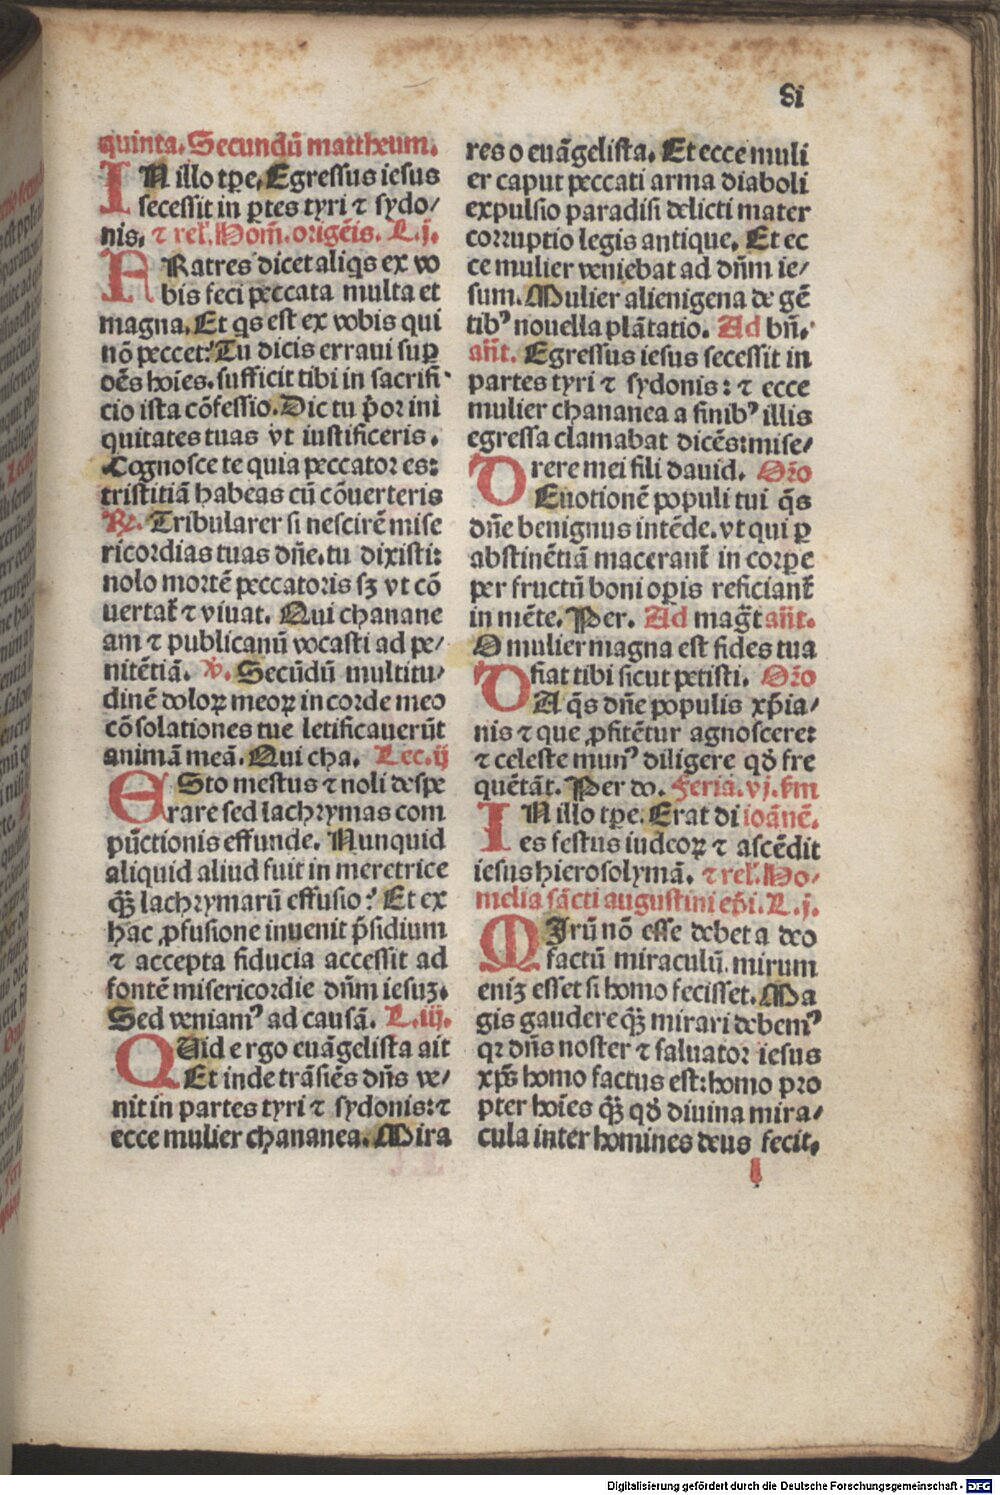 81
quinta. Secundū mattheum.
IN illo tp̄e. Egressus iesus
secessit in ꝑtes tyri ⁊ sydo/
nis. ⁊ rel̕. Hom̄. origēis. L.j.
FRatres dicet aliq̄s ex vo
bis feci peccata multa et
magna. Et q̄s est ex vobis qui
nō peccet: Tu dicis erraui suꝑ
oēs hoīes. sufficit tibi in sacrifi
cio ista cōfessio. Dic tu p̄or ini
quitates tuas vt iustificeris.
Cognosce te quia peccator es:
tristitiā habeas cū cōuerteris
℟. Tribularer si nescirē mise
ricordias tuas dn̄e. tu dixisti:
nolo mortē peccatoris sꝫ vt cō
uertat̄ ⁊ viuat. Qui chanane
am ⁊ publicanū vocasti ad pe/
nitētiā. ℣. Secūdū multitu/
dinē doloꝝ meoꝝ in corde meo
cōsolationes tue letificauerūt
animā meā. Qui cha. Lec.ij
ESto mestus ⁊ noli despe
rare sed lachrymas com
pūctionis effunde. Nunquid
aliquid aliud fuit in meretrice
q̄ꝫ lachrymarū effusio: Et ex
hac ꝓfusione inuenit p̄sidium
⁊ accepta fiducia accessit ad
fontē misericordie dn̄m iesuꝫ.
Sed veniamꝰ ad causā. L.iij.
QUid ergo euāgelista ait
Et inde trāsiēs dn̄s ve/
nit in partes tyri ⁊ sydonis: ⁊
ecce mulier chananea. Mira
res o euāgelista. Et ecce muli
er caput peccati arma diaboli
expulsio paradisi delicti mater
corruptio legis antique. Et ec
ce mulier veniebat ad dn̄m ie/
sum. Mulier alienigena de gē
tibꝰ nouella plātatio. Ad bn̄.
an̄t. Egressus iesus secessit in
partes tyri ⁊ sydonis: ⁊ ecce
mulier chananea a finibꝰ illis
egressa clamabat dicēs: mise/
rere mei fili dauid. Or̄o
DEuotionē populi tui q̄s
dn̄e benignus intēde. vt qui ꝑ
abstinētiā macerant̄ in corpe
per fructū boni opis reficiant̄
in mēte. Per. Ad maḡt an̄t.
O mulier magna est fides tua
fiat tibi sicut petisti. Or̄o
DA q̄s dn̄e populis xp̄ia/
nis ⁊ que ꝓfitētur agnoscere:
⁊ celeste munꝰ diligere qd̄ fre
quētāt. Per do. Feria.vj. fm
IN illo tp̄e. Erat di ioānē.
es festus iudeoꝝ ⁊ ascēdit
iesus hierosolymā. ⁊ rel̕. Ho/
melia sācti augustini ep̄i. L.j.
MIrū nō esse debet a deo
factū miraculū. mirum
eniꝫ esset si homo fecisset. Ma
gis gaudere q̄ꝫ mirari debemꝰ
qꝛ dn̄s noster ⁊ saluator iesus
xp̄s homo factus est: homo pro
pter hoīes q̄ꝫ qd̄ diuina mira/
cula inter homines deus fecit.
l
Digitalisierung gefördert durch die Deutsche Forschungsgemeinschaft - DFG